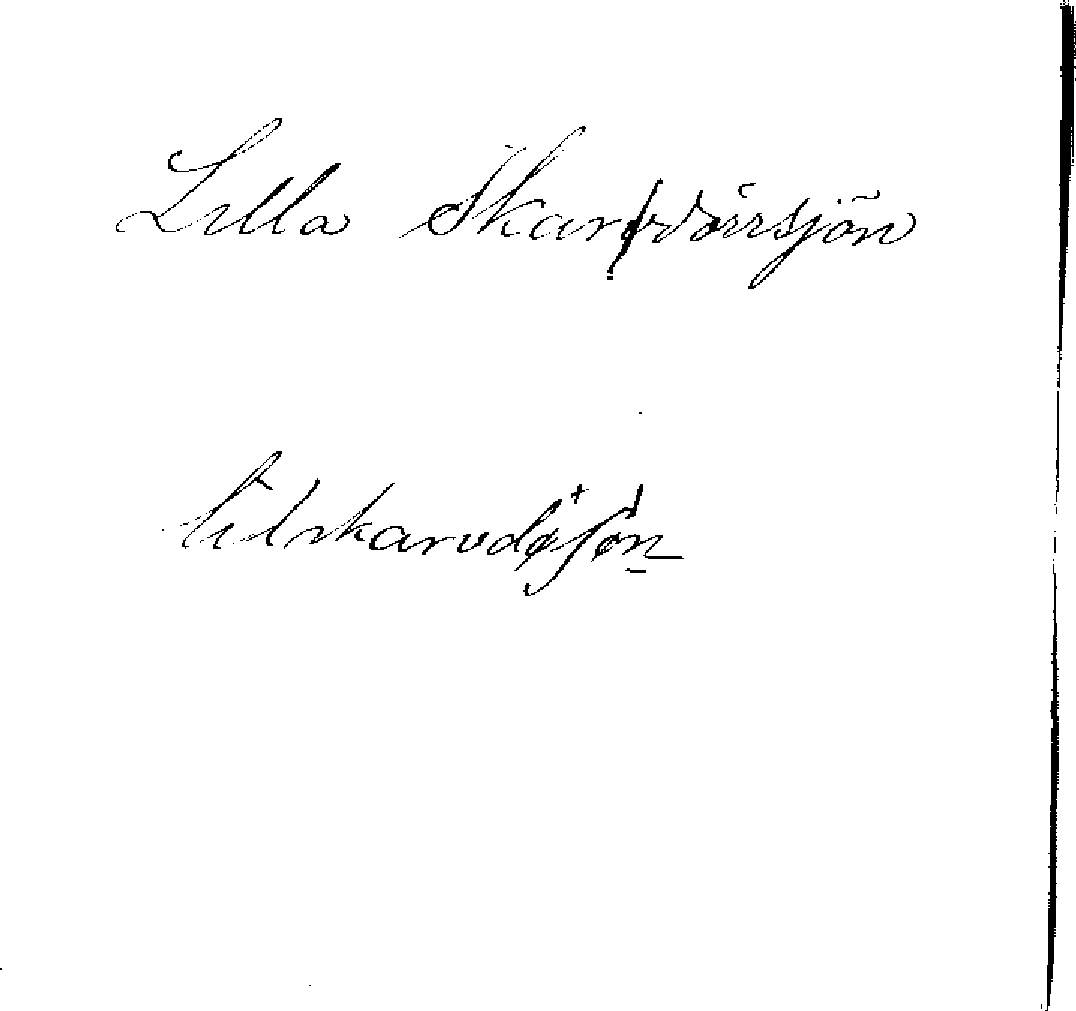 Lilla Skarvdörrsjön
lilskarvdøʃøn